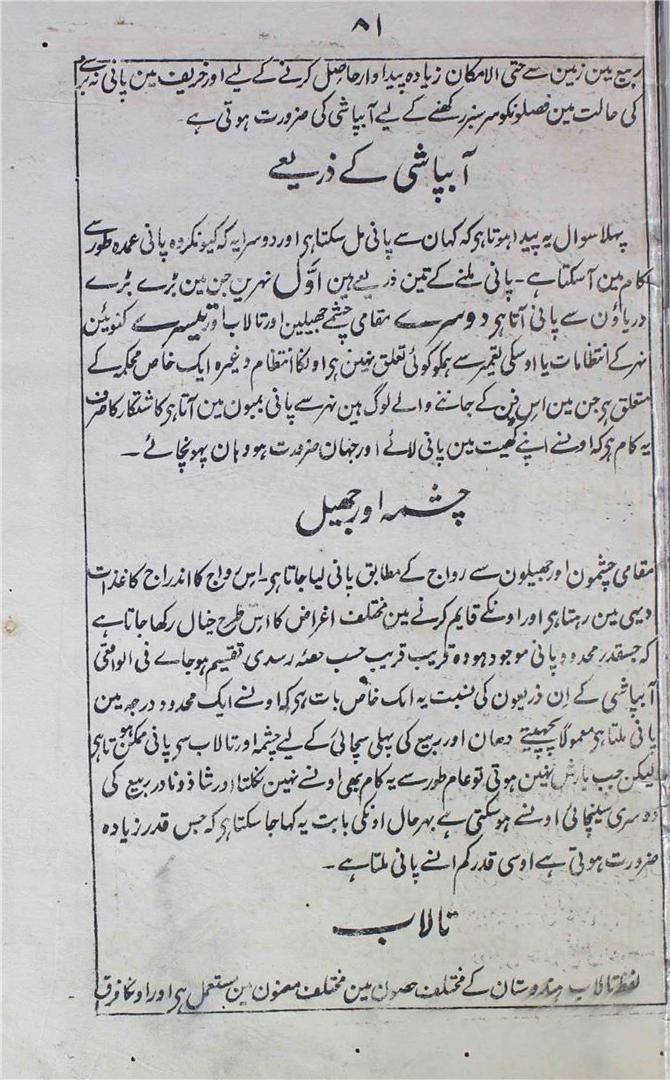 ۸۱
ربیع مین زمین سے حتی الامکان زیادہ پیداوار حاصل کرنے کے لیے اور خریف مین پانی نہ برسنے
کی حالت مین فصلونکو سرسبز رکھنے کے لیے آبپاشی کی ضرورت ہوتی ہے۔
آبپاشی کے ذریعے
پہلا سوال یہ پیدا ہوتا ہی کہ کہان سے پانی مل سکتا ہی اور دوسرا یہ کہ کیونکر وہ پانی عمدہ طور سے
کام مین آسکتا ہے۔ پانی ملنے کے تین ذریعے ہین اوّل نہرین جن مین بڑے بڑے
دریاؤن سے پانی آتا ہی دوسرے مقامی چشمے جھیلین اور تالاب اور تیسرے کنوئین
نہر کے انتظامات یا اوسکی تعمیر سے ہمکو کوئی تعلق نہین ہی اونکا انتظام وغیرہ ایک خاص محکمہ کے
متعلق ہی جن مین اس فن کے جاننے والے لوگ ہین نہر سے پانی بمبون مین آتا ہی کاشتکار کا صرف
یہ کام ہی کہ اونسے اپنے کھیت مین پانی لائے اور جہان ضرورت ہو وہان پہونچائے۔
چشمہ اور جھیل
مقامی چشمون اور جھیلون سے رواج کے مطابق پانی لیا جاتا ہی۔ اس رواج کا اندراج کاغذات
دیہی مین رہتا ہی اور اونکے قایم کرنے مین مختلف اغراض کا اس طرح خیال رکھا جاتا ہے
کہ جسقدر محدود پانی موجود ہو وہ قریب قریب حسب حصہ رسدی تقسیم ہو جاے فی الواقعی
آبپاشی کے اِن ذریعون کی نسبت یہ ایک خاص بات ہی کہ اونسے ایک محدود درجہ مین
پانی ملتا ہی معمولاً پچھیتے دھان اور ربیع کی پہلی سچائی کے لیے چشمہ اور تالاب سی پانی ممکن ہوتا ہی
لیکن جب بارش نہین ہوتی تو عام طور سے یہ کام بھی اونسے نہین نکلتا اور شاذ و نادر ربیع کی
دوسری سینچائی اونسے ہوسکتی ہے بہرحال اونکی بابت یہ کہا جا سکتا ہی کہ جس قدر زیادہ
ضرورت ہوتی ہے اوسی قدر کم انسے پانی ملتا ہے۔
تالاب
لفظ تالاب ہندوستان کے مختلف حصون مین مختلف معنون مین مستعمل ہی اور اونکا فرق